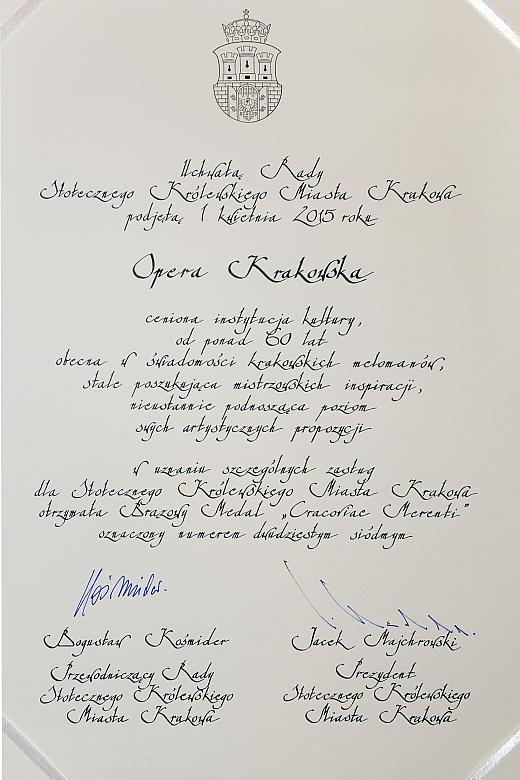 Uchwałą Rady
Stołecznego Królewskiego Miasta Krakowa
podjętą 1 kwietnia 2015 roku
Opera Krakowska
ceniona instytucja kultury,
od ponad 60 lat
obecna w świadomości krakowskich melomanów,
stale poszukująca mistrzowskich inspiracji,
nieustannie podnosząca poziom
swych artystycznych propozycji
w uznaniu szczególnych zasług
dla Stołecznego Królewskiego Miasta Krakowa
otrzymała Brązowy Medal „Cracoviae Merenti”
oznaczony numerem dwudziestym siódmym
Bogusław Kośmider
Przewodniczący Rady
Stołecznego Królewskiego
Miasta Krakowa
Jacek Majchrowski
Prezydent
Stołecznego Królewskiego
Miasta Krakowa